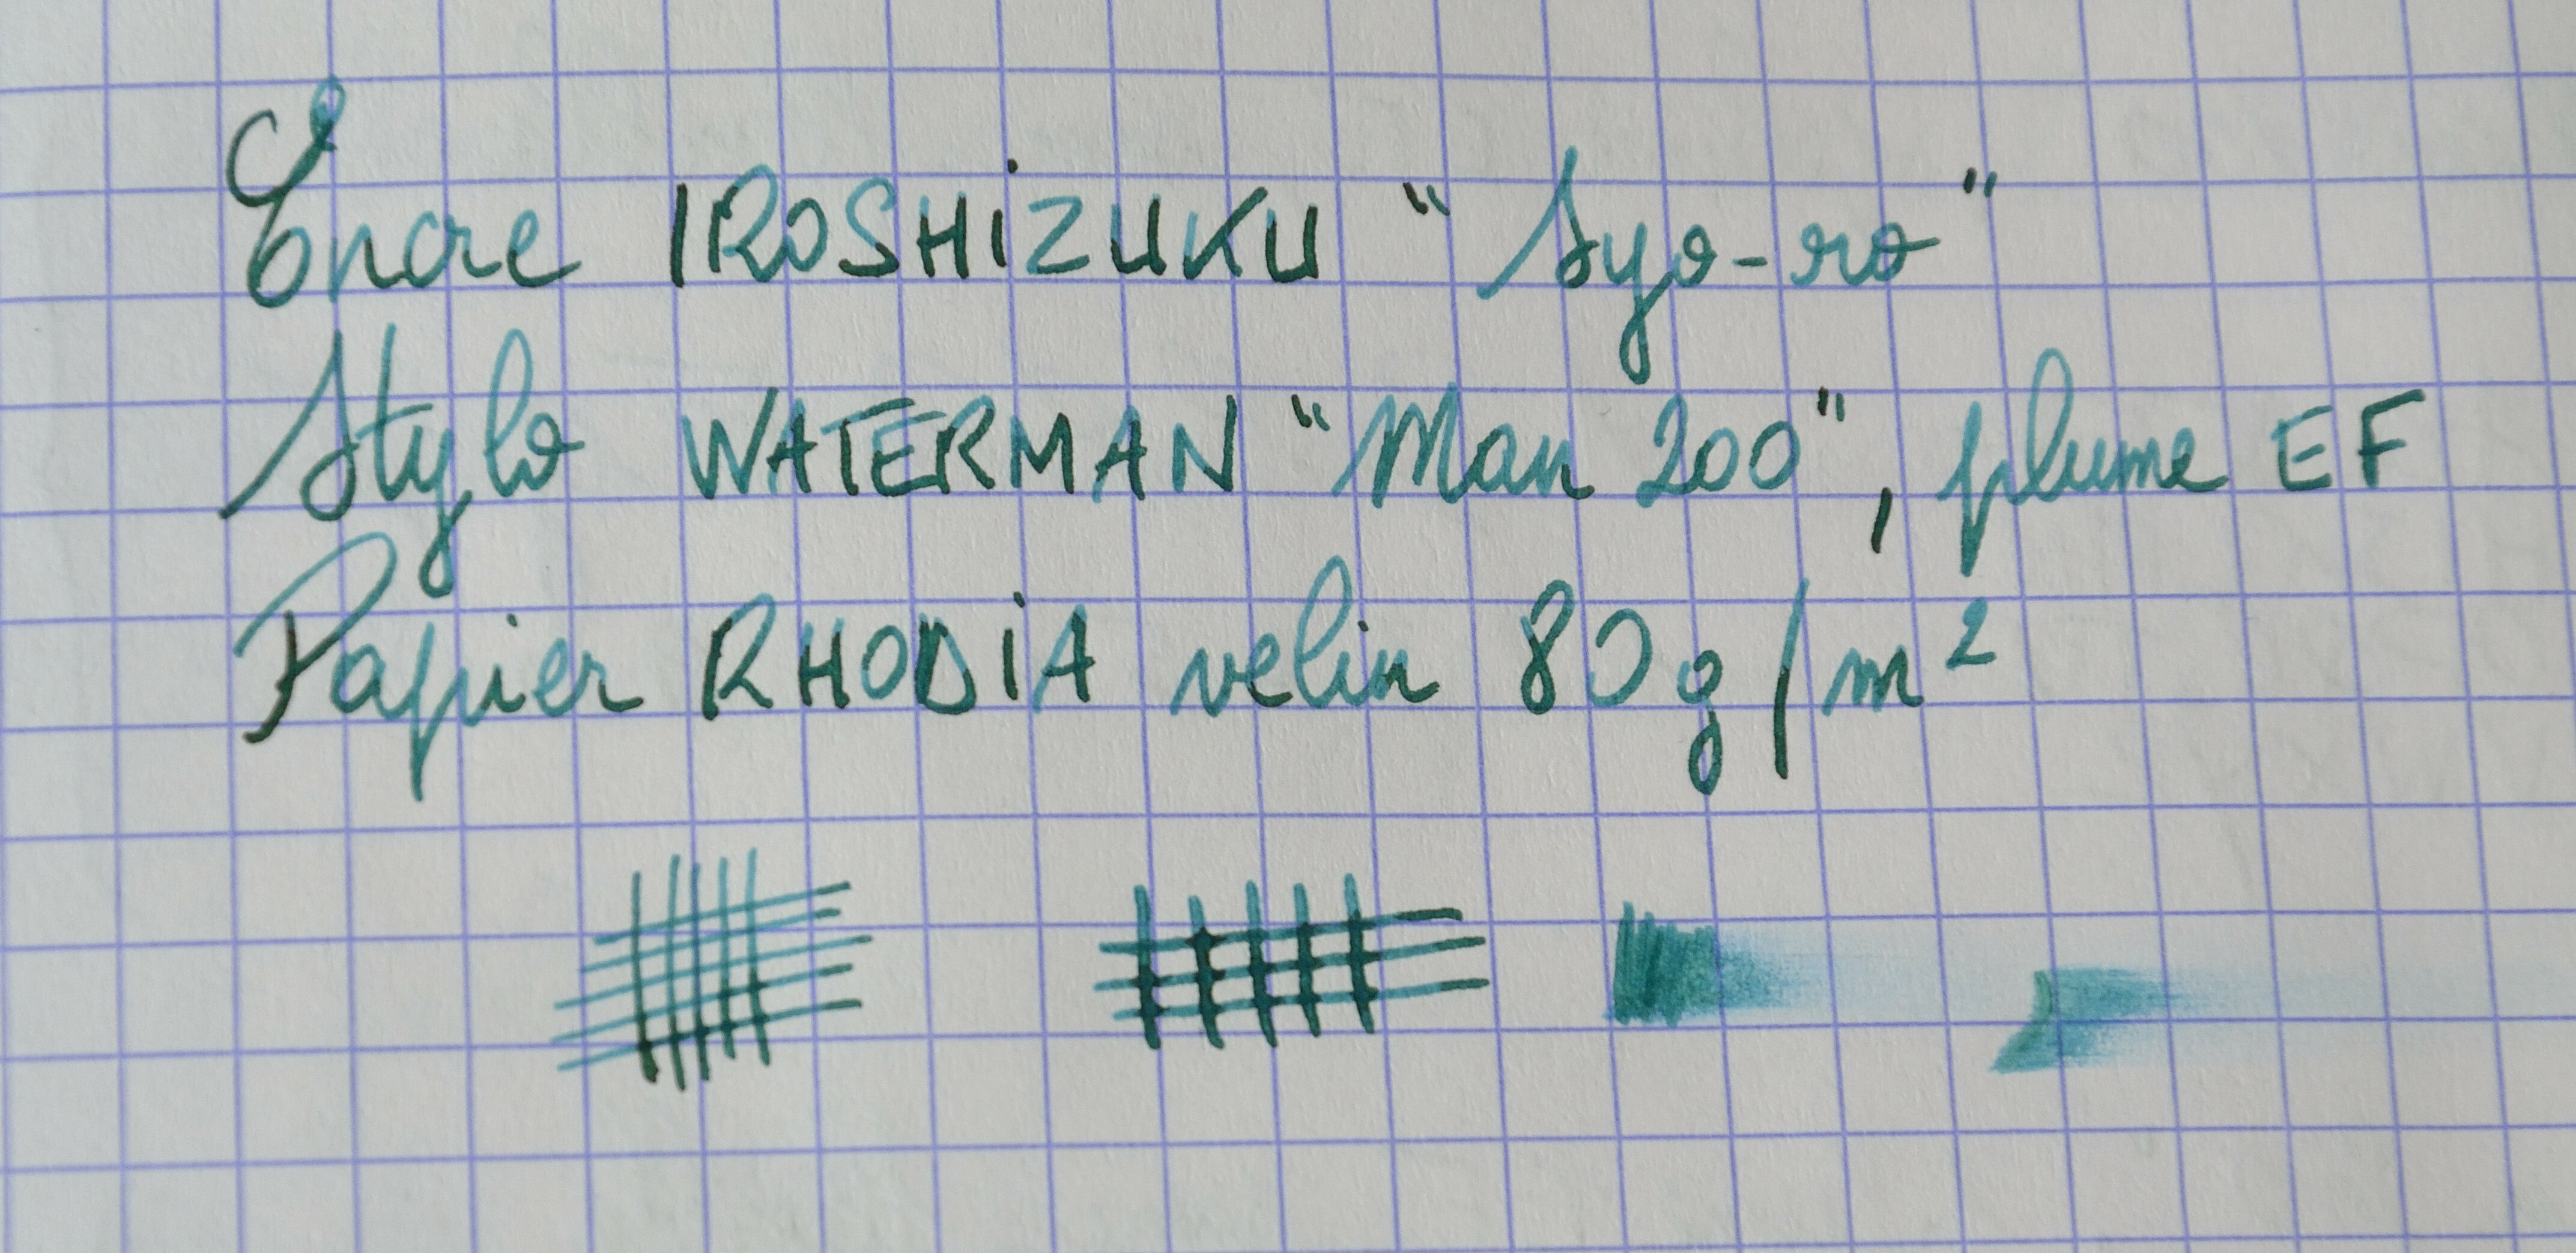 Encre IROSHiZUKU "Syo-ro"
Stylo WATERMAN "Man 200", plume EF
Papier RHODiA velin 80g/m²